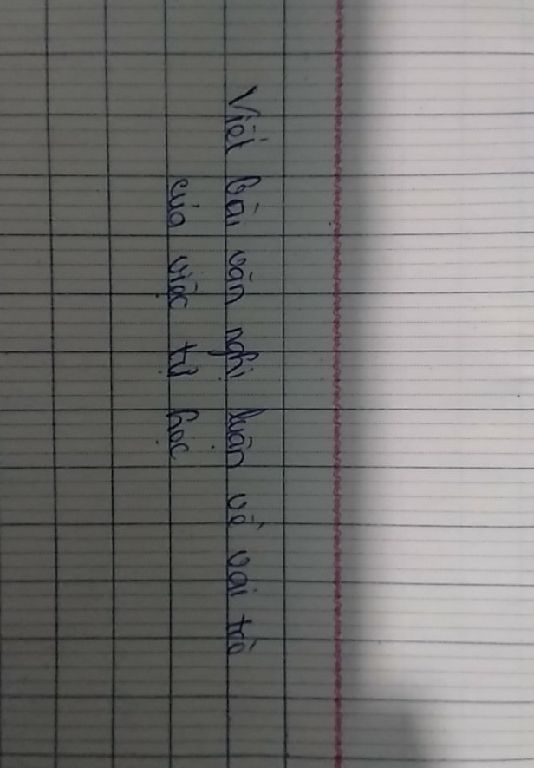 Viết bài văn nghị luận về vai trò
của việc tự học